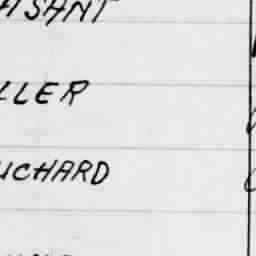 ASANT
LLER
UCHARD